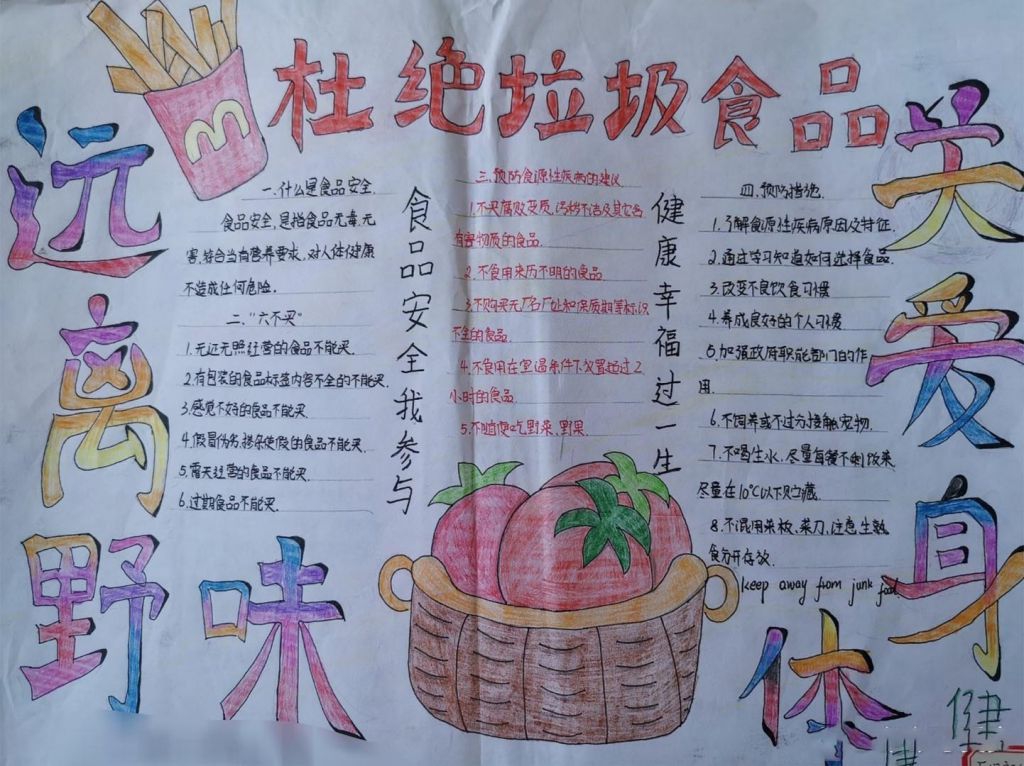 杜绝垃圾食品
远离野味
关爱身体健
一.什么是食品安全
食品安全,是指食品无毒.无
害,符合当有营养要求,对人体健康
不造成任何危险.
二."六不买"
1.无证无照经营的食品不能买.
2.有包装的食品标签内容不全的不能买.
3.感觉不好的食品不能买.
4.假冒伪劣,掺杂使假的食品不能买.
5.露天经营的食品不能买.
6.过期食品不能买.
食品安全我参与
三.预防食源性疾病的建议
1.不买腐败变质,污秽不洁及其它含
有害物质的食品.
2.不食用来历不明的食品
3.不购买无厂名厂址和保质期等标识
不全的食品.
4.不食用在室温条件下放置超过2
小时的食品
5.不随便吃野菜,野果.
健康幸福过一生
四.预防措施.
1.了解食源性疾病原因及特征.
2.通过学习知道如何选择食品.
3.改变不良饮食习惯
4.养成良好的个人习惯
5.加强政府职能部门的作
用.
6.不饲养或不过分接触宠物.
7.不喝生水,尽量每餐不剩饭菜
尽量在10℃以下贮藏
8.不混用菜板,菜刀,注意生熟
食分开存放.
keep away from junk food